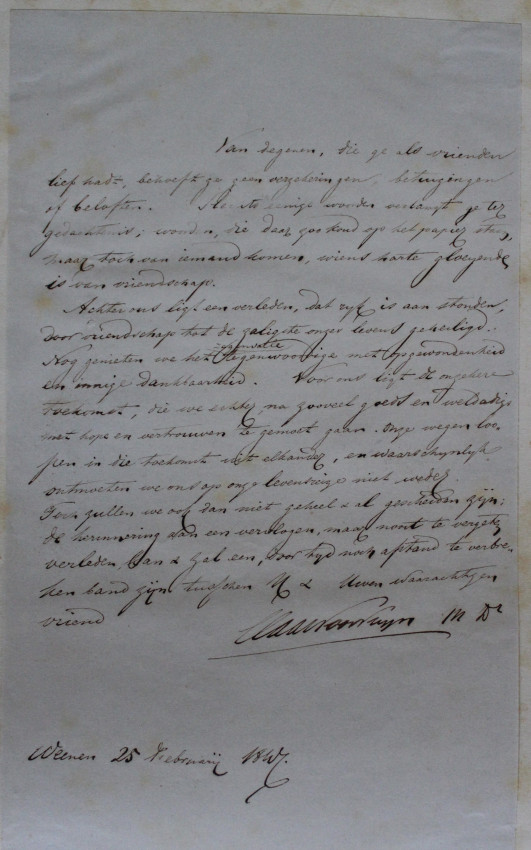 Van degenen, die ge als vrienden
lief hadt, behoeft ge geen verzekeringen, betuigingen
of beloften. Slechts eenige woorden verlangt ge tot
gedachtenis; woorden, die daar zoo koud op het papier staan,
maar toch van iemand komen, wiens harte gloeyende
is van vriendschap.
Achter ons ligt een verleden, dat rijk is aan stonden,
door vriendschap tot de zaligste onzer levens geheiligd.
Nog genieten we het Tegenwoordige met opgewondenheid
en innige dankbaarheid. Voor ons ligt de onzekere
toekomst, die we echter, na zooveel goeds en weldadigs
met hope en vertrouwen te gemoet gaan. Onze wegen loo-
pen in die toekomst uit elkander, en waarschynlyk
ontmoeten we ons op onze levensreize niet weder.
Toch zullen we ook dan niet geheel & al gescheiden zijn;
de herinnering aan een vervlogen, maar nooit te vergeten
verleden, kan & zal een, door tyd noch afstand te verbre-
ken band zijn tusschen U & Uwen waarachtigen
vriend
M Dr
Weenen 25 Februarij